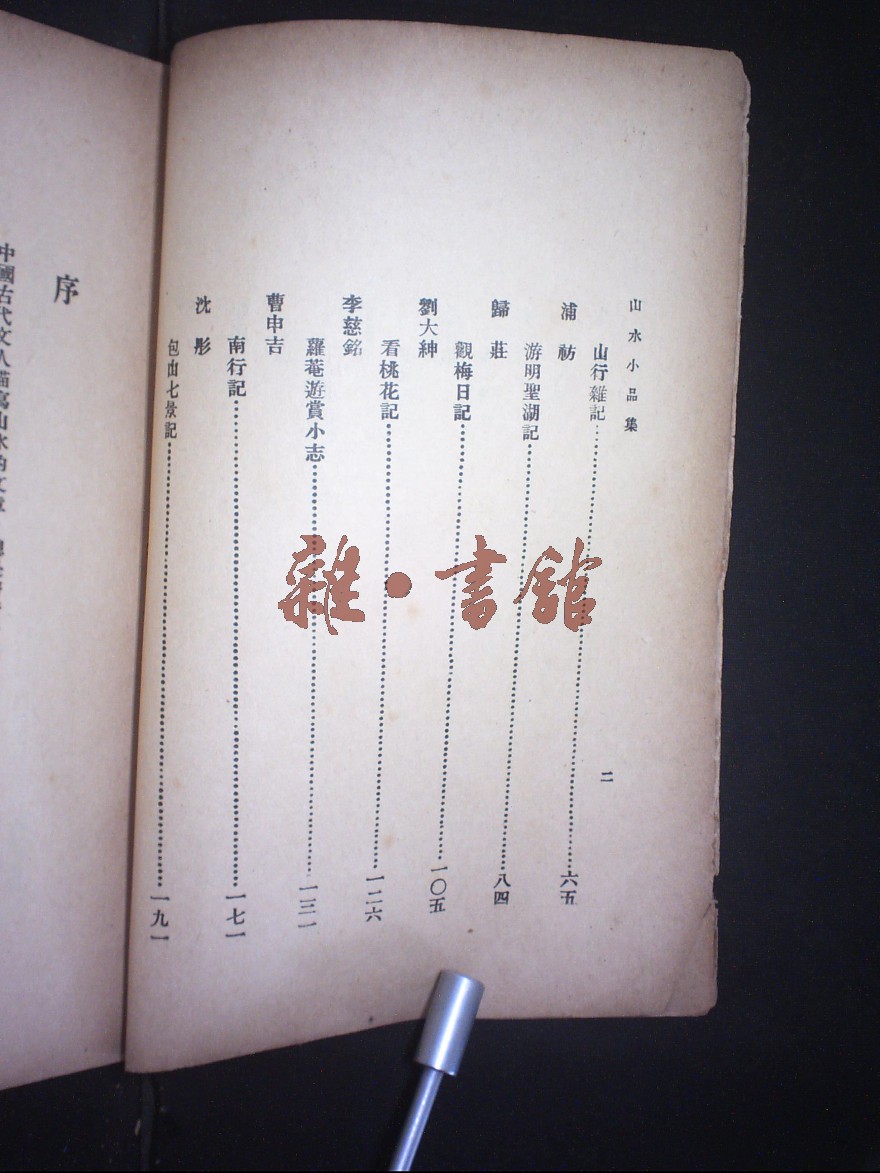 山水小品集
二
山行雜記……六五
浦祊
游明聖湖記……八四
歸莊
觀梅日記……一〇五
劉大紳
看桃花記……一二六
李慈銘
蘿菴遊賞小志……一三一
曹申吉
南行記……一七一
沈彤
包山七景記……一九一
序
中國古代文人描寫山水的文章
雜·書館